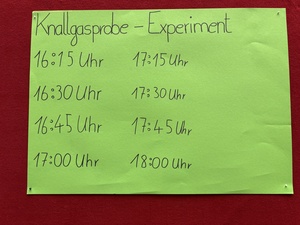 Knallgasprobe - Experiment
16:15 Uhr 17:15 Uhr
16:30 Uhr 17:30 Uhr
16:45 Uhr 17:45 Uhr
17:00 Uhr 18:00 Uhr